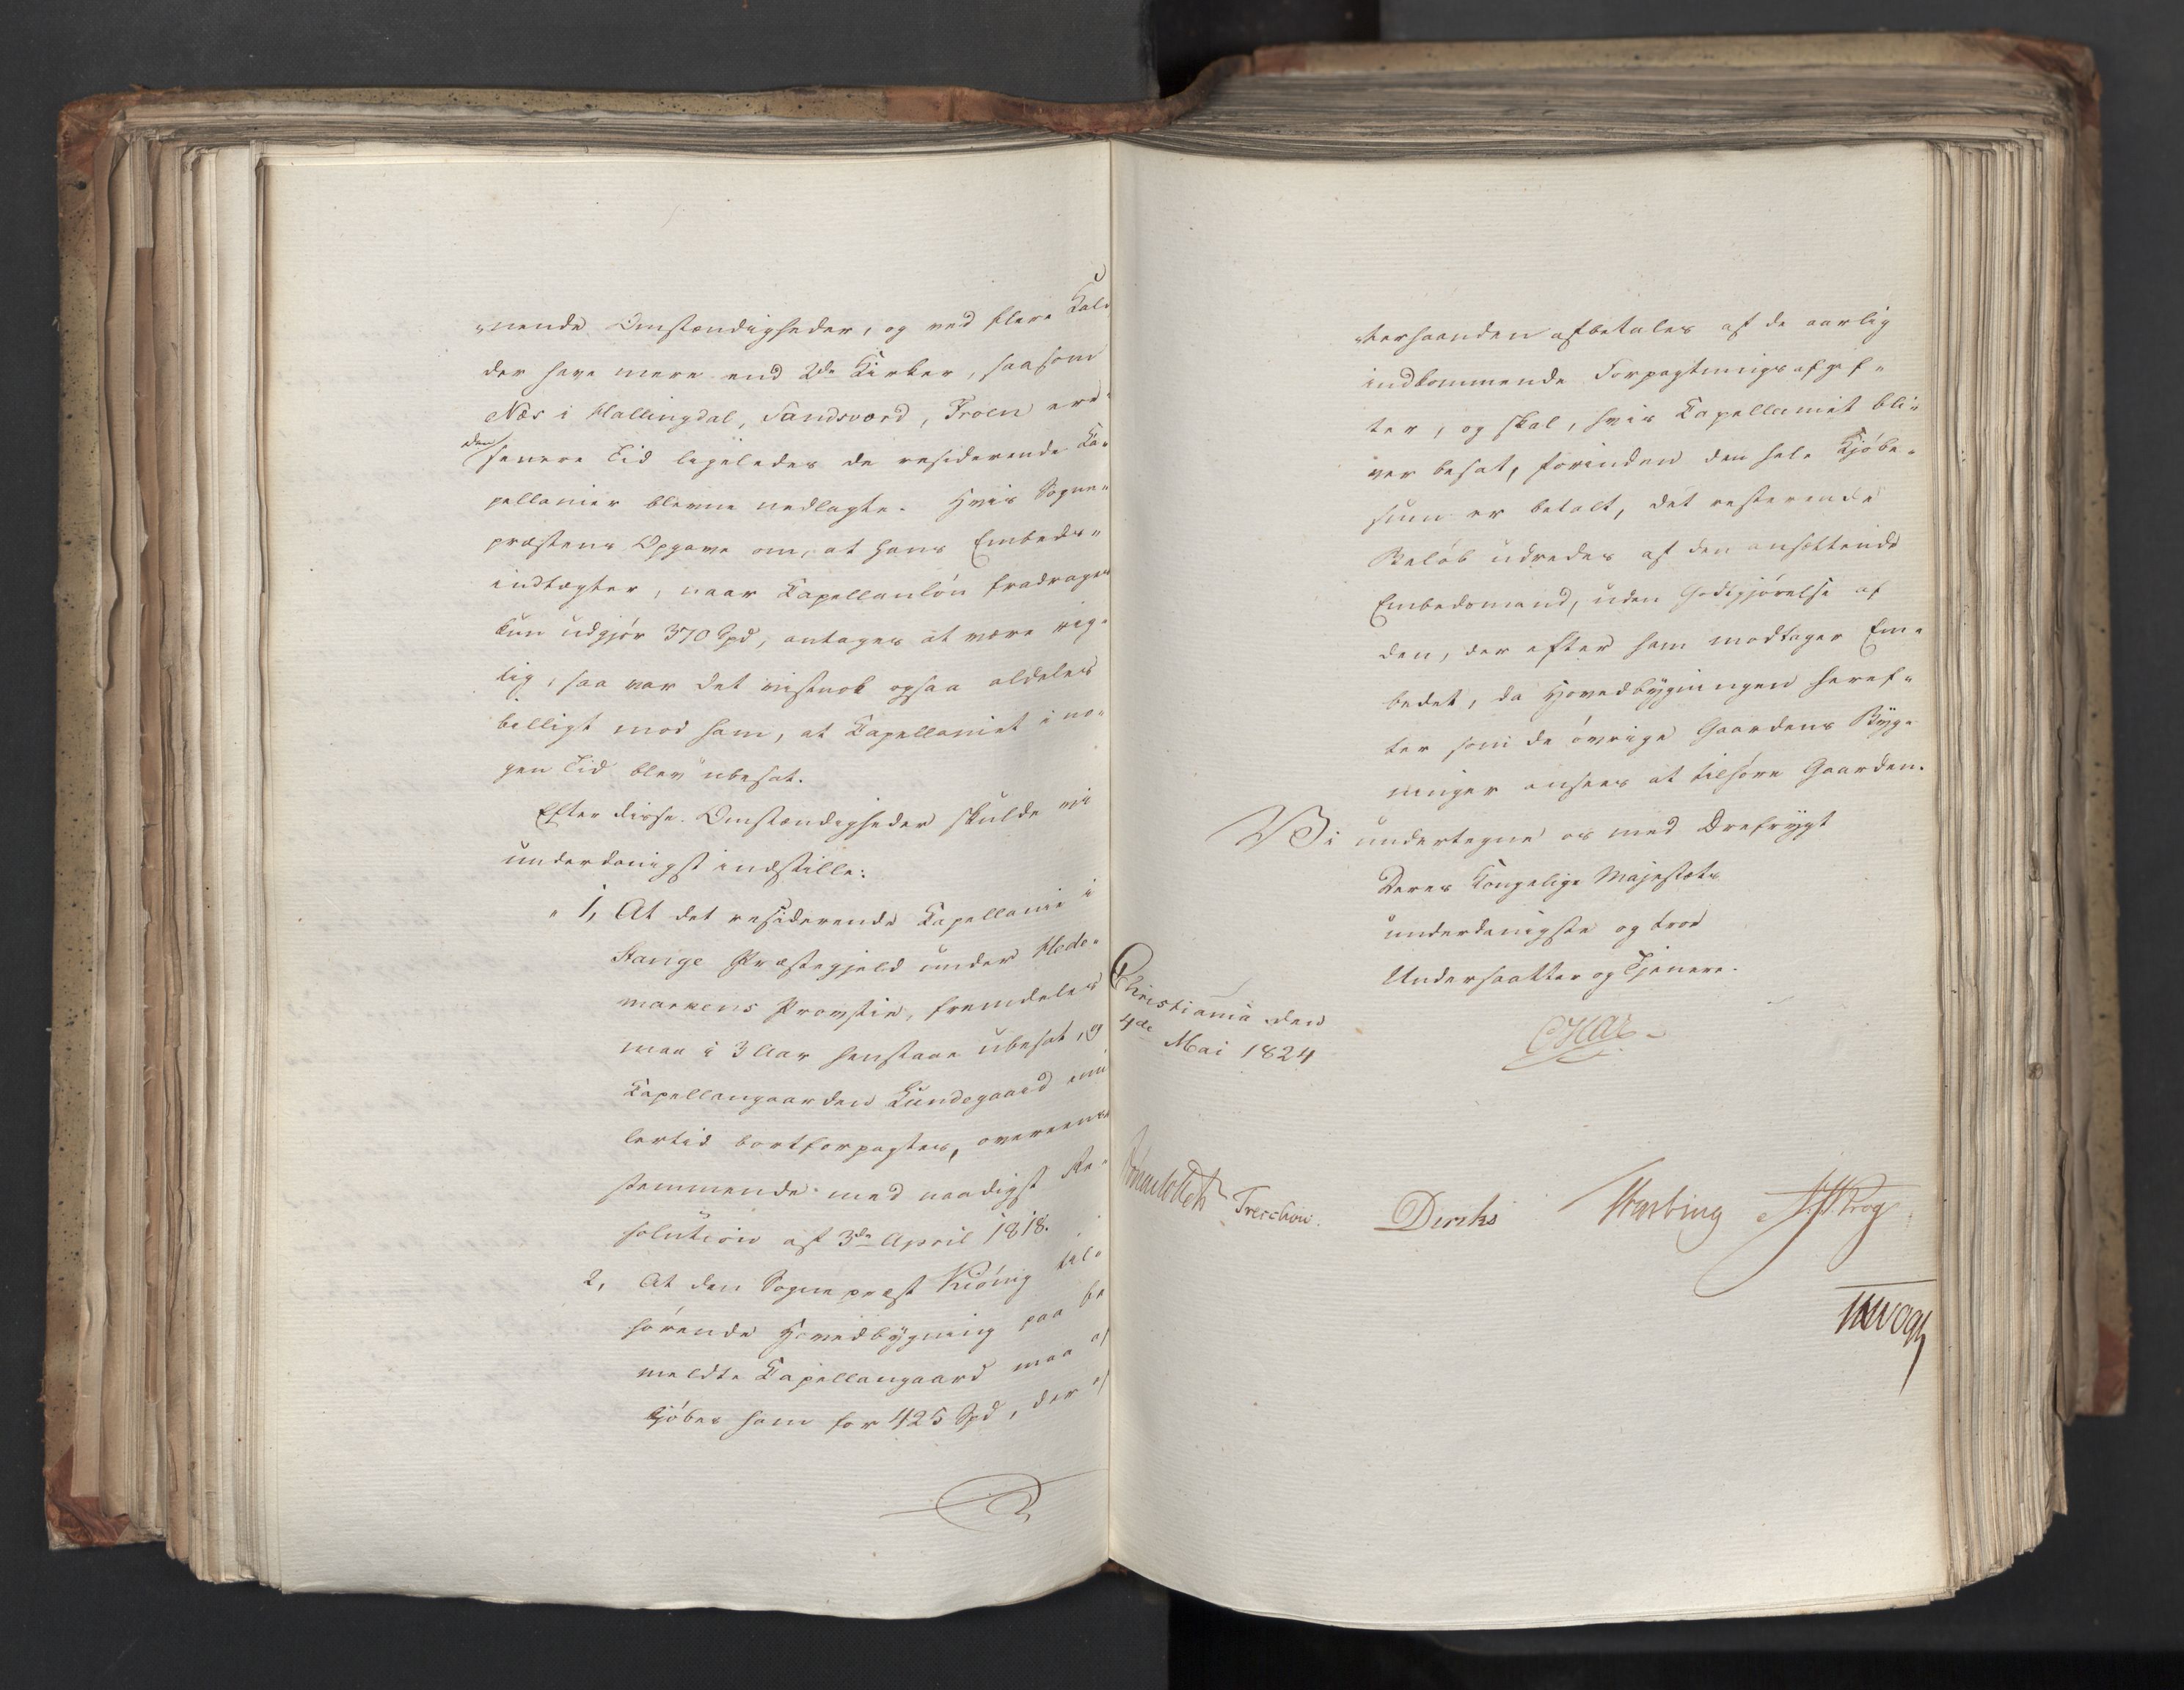 nende Omstændigheder, og ved flere Kald,
der have mere end 2de Kirker, saasom
Næs i Hallingdal, Sandsværd, Froen ere
den senere Tid ligeledes de residerende Ka-
pellanier blevne nedlagte. Hvis Sogne-
præstens Opgave om, at hans Embeds-
indtægter, naar Kapellanløn fradrages
kun udgjør 370 Spd, antages at være rig-
tig, saa var det vistnok ogsaa aldeles
billigt mod ham, at Kapellaniet i no-
gen Tid blev ubesat.
Efter disse Omstændigheder skulde vi
underdanigst indstille:
"1, At det residerende Kapellanie i
Stange Præstegjeld under Hede-
markens Provstie, fremdeles
maa i 3 Aar henstaae ubesat, og
Kapellangaarden Lundegaard imi-
lertid bortforpagtes, overeens-
stemmende med naadigst Re-
solution af 3de April 1818.
2, At den Sognepræst Kiønig til-
hørende Hovedbygning paa be-
meldte Kapellangaard maa af-
kjøbes ham for 425 Spd, der ef-
terhaanden afbetales af de aarlig
indkommende Forpagtningsafgif-
ter, og skal, hvis Kapellaniet bli-
ver besat, forinden den hele Kjøbe-
sum er betalt, det resterende
Beløb udredes af den ansættende
Embedsmand, uden Godtgjørelse af
den, der efter ham modtager Em-
bedet, da Hovedbygningen heref-
ter som de øvrige Gaardens Byg-
ninger ansees at tilhøre Gaarden.
Vi undertegne os med Ærefrygt
Deres Kongelige Majestæts
underdanigste og troe
Undersaatter og Tjenere.
Christiania den
4de Mai 1824
Treschow.
Diriks